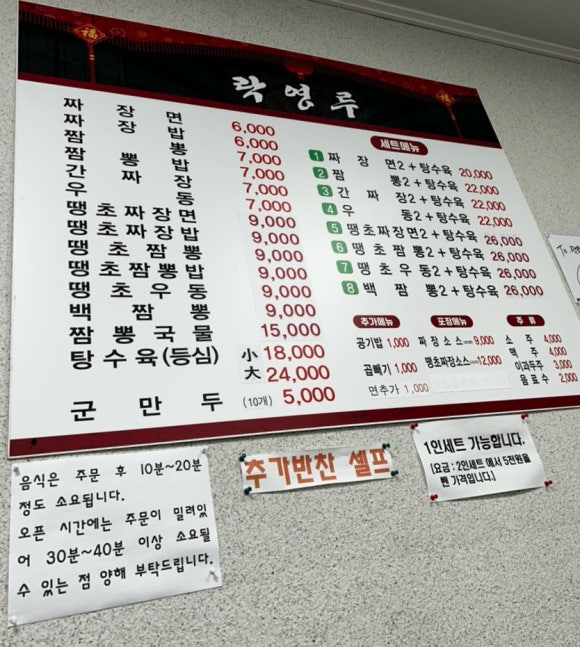 福
福
락영루
짜장면 6,000
짜장밥 6,000
짬뽕 7,000
짬뽕밥 7,000
간짜장 7,000
우동 7,000
땡초짜장면 9,000
땡초짜장밥 9,000
땡초짬뽕 9,000
땡초짬뽕밥 9,000
땡초우동 9,000
백짬뽕 9,000
짬뽕국물 15,000
탕수육(등심) 小 18,000
大 24,000
군만두 (10개) 5,000
세트메뉴
1 짜장면2+탕수육 20,000
2 짬뽕2+탕수육 22,000
3 간짜장2+탕수육 22,000
4 우동2+탕수육 22,000
5 땡초짜장면2+탕수육 26,000
6 땡초짬뽕2+탕수육 26,000
7 땡초우동2+탕수육 26,000
8 백짬뽕2+탕수육 26,000
추가메뉴
공기밥 1,000
곱빼기 1,000
면추가 1,000
포장메뉴
짜장소스 9,000
땡초짜장소스 12,000
주류
소주 4,000
맥주 4,000
이과두주 3,000
음료수 2,000
음식은 주문 후 10분~20분
정도 소요됩니다.
오픈 시간에는 주문이 밀려있
어 30분~40분 이상 소요될
수 있는 점 양해 부탁드립니다.
추가반찬 셀프
1인세트 가능합니다.
(요금 : 2인세트 에서 5천원을
뺀 가격입니다.)
To